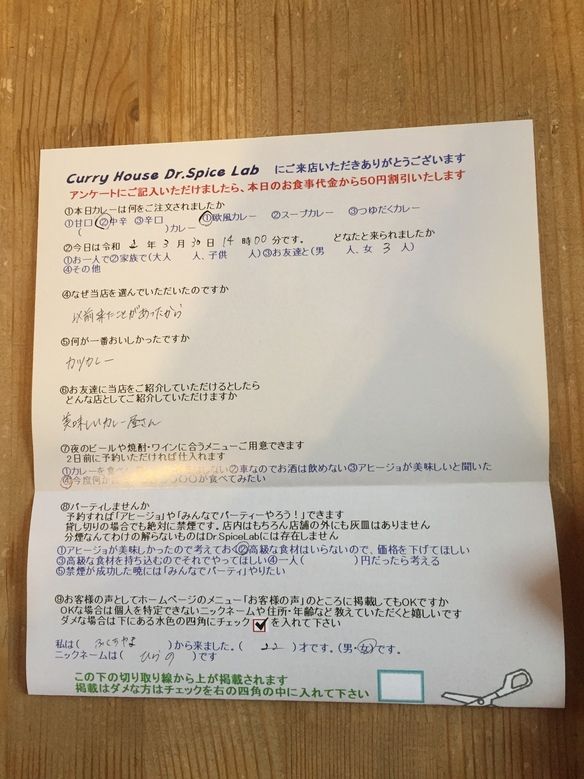 Curry House Dr.Spice Lab にご来店いただきありがとうございます
アンケートにご記入いただけましたら、本日のお食事代金から50円割引いたします
①本日カレーは何をご注文されましたか
①甘口 ②中辛 ③辛口 ①欧風カレー ②スープカレー ③つゆだくカレー
( )カレー
②今日は令和 2 年 3 月 30 日 14 時 00 分です。 どなたと来られましたか
①お一人で②家族で(大人 人、子供 人)③お友達と(男 人、女 3 人)
④その他
④なぜ当店を選んでいただいたのですか
以前来たことがあったから
⑤何が一番おいしかったですか
カツカレー
⑥お友達に当店をご紹介していただけるとしたら
どんな店としてご紹介していただけますか
美味しいカレー屋さん
⑦夜のビールや焼酎・ワインに合うメニューご用意できます
2日前に予約いただければ仕入れます
①カレーを食べ ない②車なのでお酒は飲めない③アヒージョが美味しいと聞いた
④今度何か 〇〇〇が食べてみたい
⑧パーティしませんか
予約すれば「アヒージョ」や「みんなでパーティーやろう!」できます
貸し切りの場合でも絶対に禁煙です。店内はもちろん店舗の外にも灰皿はありません
分煙なんてわけの解らないものはDr.SpiceLabには存在しません
①アヒージョが美味しかったので考えておく②高級な食材はいらないので、価格を下げてほしい
③高級な食材を持ち込むのでそれでやってほしい④一人( )円だったら考える
⑤禁煙が成功した暁には「みんなでパーティ」やりたい
⑨お客様の声としてホームページのメニュー「お客様の声」のところに掲載してもOKですか
OKな場合は個人を特定できないニックネームや住所・年齢など教えていただくと嬉しいです
ダメな場合は下にある水色の四角にチェック ✓ を入れて下さい
私は( ふくやま )から来ました。( 22 )才です。(男・女)です。
ニックネームは( ひらの )です
この下の切り取り線から上が掲載されます
掲載はダメな方はチェックを右の四角の中に入れて下さい